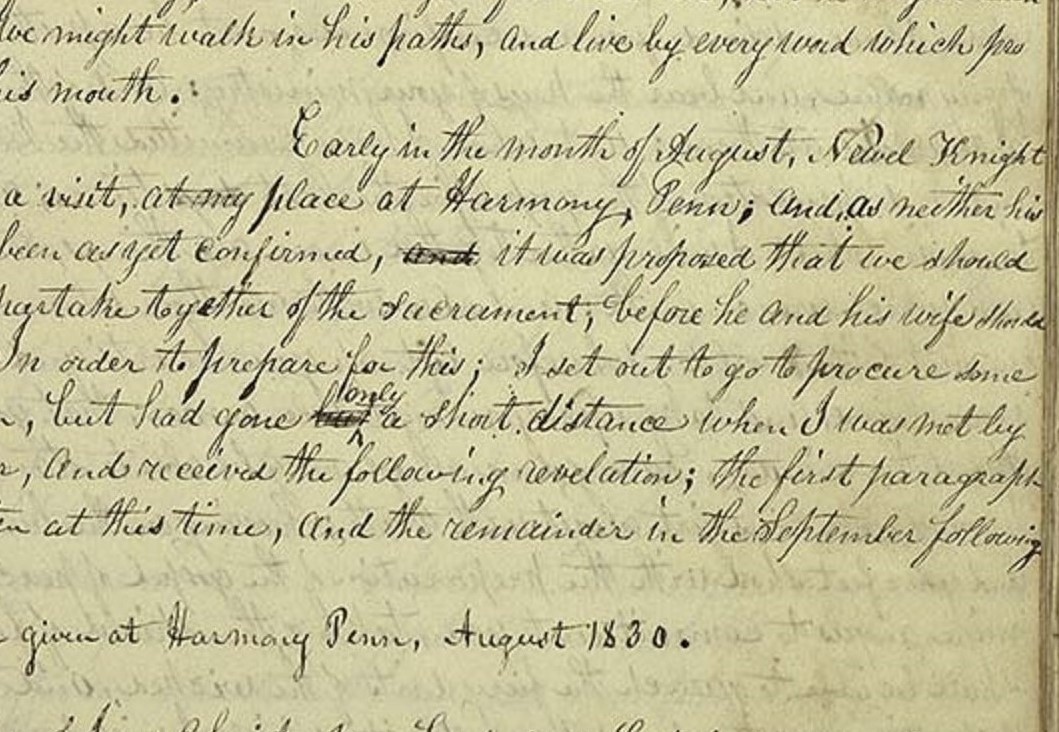 we might walk in his paths, and live by every word which pro
his mouth.
Early in the month of August, Newel Knight
a visit, at my place at Harmony, Penn; and, as neither his
been as yet confirmed, and it was proposed that we should
partake together of the sacrament; before he and his wife should
In order to prepare for this; I set out to go to procure some
but had gone but only a short distance when I was met by
and received the following revelation; the first paragraph
at this time, and the remainder in the September following
given at Harmony Penn, August 1830.